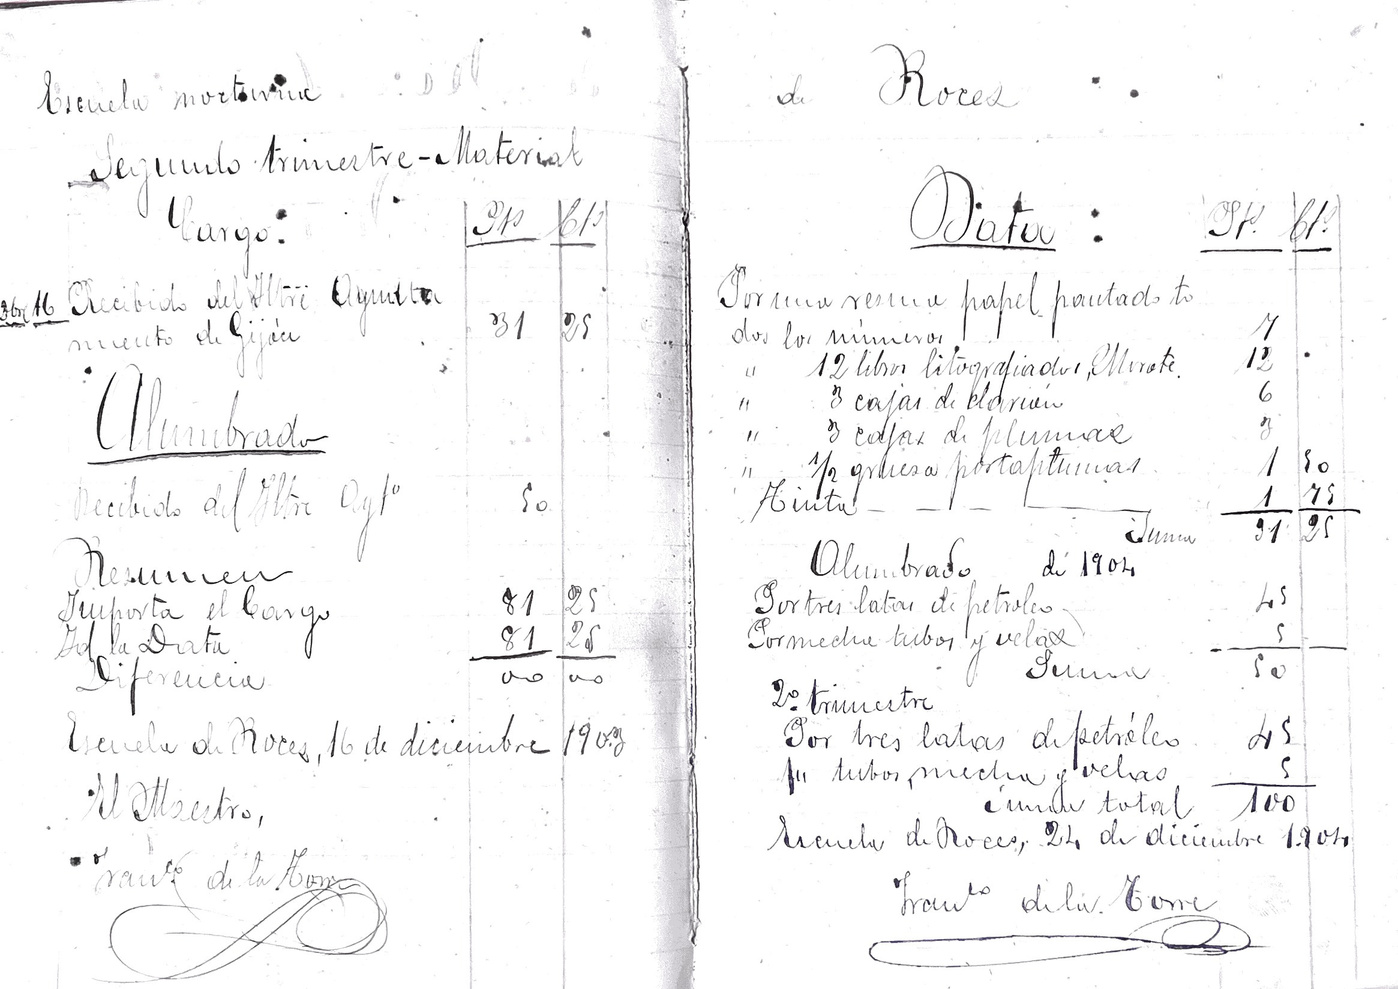 Escuela nocturna
Segundo trimestre - Material
Cargo: Pts Cts
Dbre 16 Recibido del Iltre Ayunta
miento de Gijón 31 25
Alumbrado
Recibido del Iltre Aytº 50
Resumen
Importa el Cargo 81 25
Id la Data 81 25
Diferencia 00 00
Escuela de Roces, 16 de diciembre 1903
El Maestro,
Francº de la Torre
de Roces
Data: Pts. Cts.
Por una resma papel pautado to
dos los números 7
" 12 libros litografiados, 12
" 3 cajas de clarión 6
" 3 cajas de plumas 3
" 1/2 gruesa portaplumas 1 50
Tinta 1 75
Suma 31 25
Alumbrado de 1904
Por tres latas de petroleo 45
Por mecha tubos y velas 5
Suma 50
2º trimestre
Por tres latas de petróleo 45
P" tubos, mecha y velas 5
Suma total 100
Escuela de Roces, 24 de diciembre 1904
Francº de la Torre